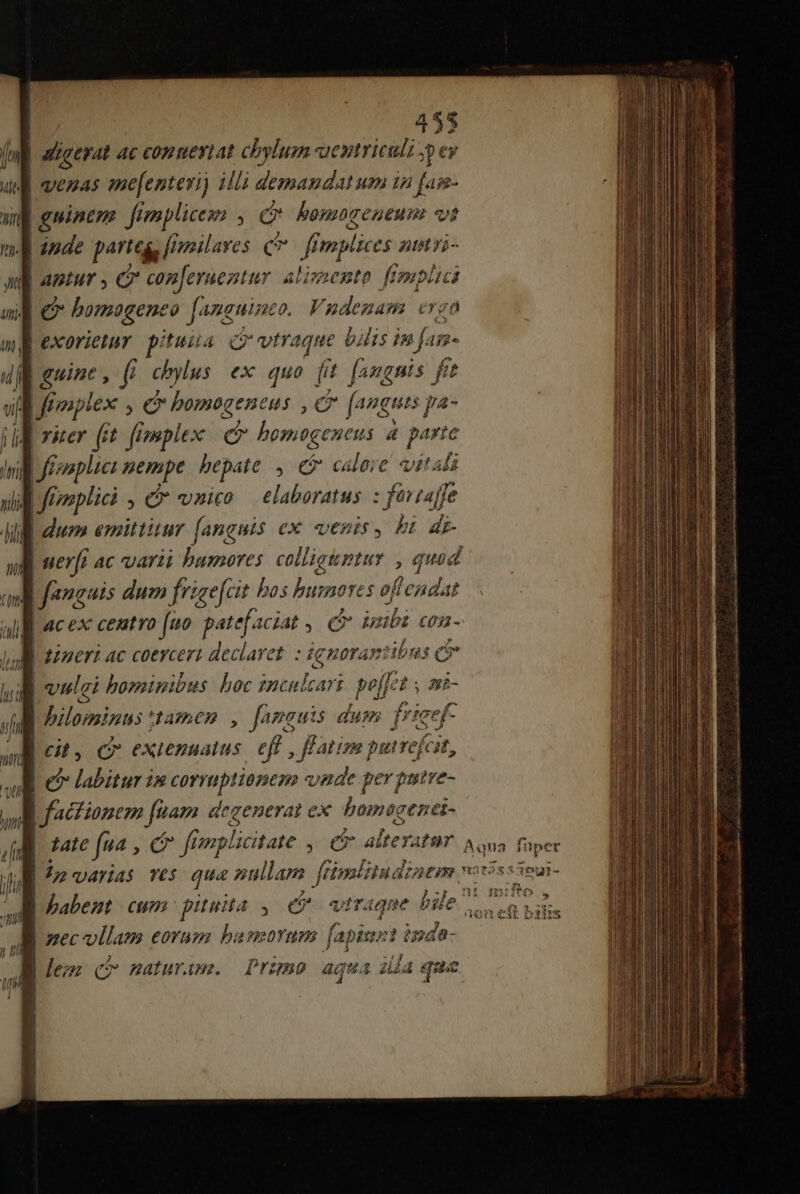 455
digerat ac conuertat chylum ventriculi per
venas meſenterij illi demandatum in ſan-
guinem ſimplicem , & homogeneum vt
inde partes, ſimilares & ſimplices nutri-
antur , & conſeruentur alimento ſimplici
& homogeneo ſanguineo. Vndenam ergo
exorietur pituita & vtraque bilis in ſan-
guine, ſi chylus ex quo fit ſanguis ſit
ſimplex , & homogeneus , & ſanguis pa-
riter ſit ſimplex & homogeneus à parte
ſimplici nempe hepate , & calore vitali
ſimplici , & vnico elaboratus : fortaſſe
dum emittitur ſanguis ex venis, hi di-
uerſi ac varii humores colliguntur , quod
ſanguis dum frigeſcit hos humores oſtendat
ac ex centro ſuo patefaciat , & inibi con-
tineri ac coerceri declaret : ignorantibus &
vulgi hominibus hoc inculcari poſſet ; ni-
hilominus tamen , ſanguis dum frigeſ-
cit, & extenuatus eſt , ſtatim putreſcit,
& labitur in corruptionem vnde per putre-
factionem ſuam degenerat ex homogenei-
tate ſua , & ſimplicitate , & alteratur
in varias res quæ nullam ſimilitudinem
habent cum pituita , & vtraque bile
nec vllam eorum humorum ſapiunt indo-
lem & naturam. Primo aqua illa quæ
Aqua ſuper
natãs sãgui-
ni miſto ,
non eſt bilis